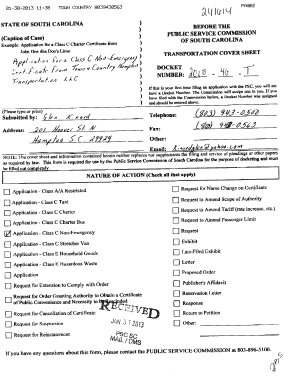 01-30-2013 11:38 TOWN COUNTRY 8039433563 PAGE2
241614
STATE OF SOUTH CAROLINA
(Caption of Case)
Example: Application for a Class C Charter Certificate from
John Doe dba Doe's Limo
Application for a Class C Non-Emergency
Certificate From Town + Country Hampton
Transportation LLC
BEFORE THE
PUBLIC SERVICE COMMISSION
OF SOUTH CAROLINA
TRANSPORTATION COVER SHEET
DOCKET
NUMBER: 2013 - 46 - T
If this is your first time filing an application with the PSC, you will not
have a Docket Number. The Commission will assign one to you. If you
have filed with the Commission before, a Docket Number was assigned
and should be entered above.
(Please type or print)
Submitted by: Glen Kinard
Address: 201 Hoover St N
Hampton SC 29924
Telephone: (803) 943-0500
Fax: (803) 943-0563
Other:
Email:
NOTE: The cover sheet and information contained herein neither replaces nor supplements the filing and service of pleadings or other papers
as required by law. This form is required for use by the Public Service Commission of South Carolina for the purpose of docketing and must
be filled out completely.
NATURE OF ACTION (Check all that apply)
Application - Class A/A Restricted
Application - Class C Taxi
Application - Class C Charter
Application - Class C Charter Bus
Application - Class C Non-Emergency
Application - Class C Stretcher Van
Application - Class E Household Goods
Application - Class E Hazardous Waste
Application
Request for Extension to Comply with Order
Request for Order Granting Authority to Obtain a Certificate
of Public Convenience and Necessity to be Rescinded
Request for Cancellation of Certificate
Request for Suspension
Request for Reinstatement
Request for Name Change on Certificate
Request to Amend Scope of Authority
Request to Amend Tariff (rate increase, etc.)
Request to Amend Passenger Limit
Request
Exhibit
Late-Filed Exhibit
Letter
Proposed Order
Publisher's Affidavit
Reservation Letter
Response
Return to Petition
Other:
RECEIVED
JAN 31 2013
PSC SC
MAIL / DMS
If you have any questions about this form, please contact the PUBLIC SERVICE COMMISSION at 803-896-5100.